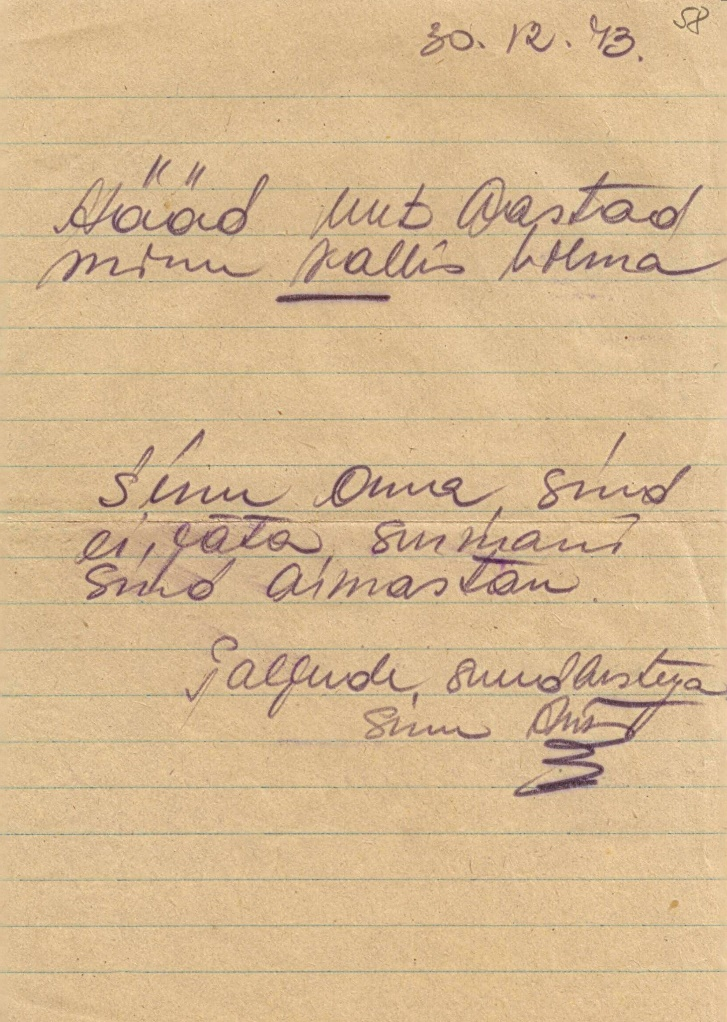 58
30. 12. 43.
Hääd uut Aastad
minu kallis Hilma
Sinu Oma, sind
ei, jäta, surmani
sind Armastan.
Jalgude, suudlustega
Sinu